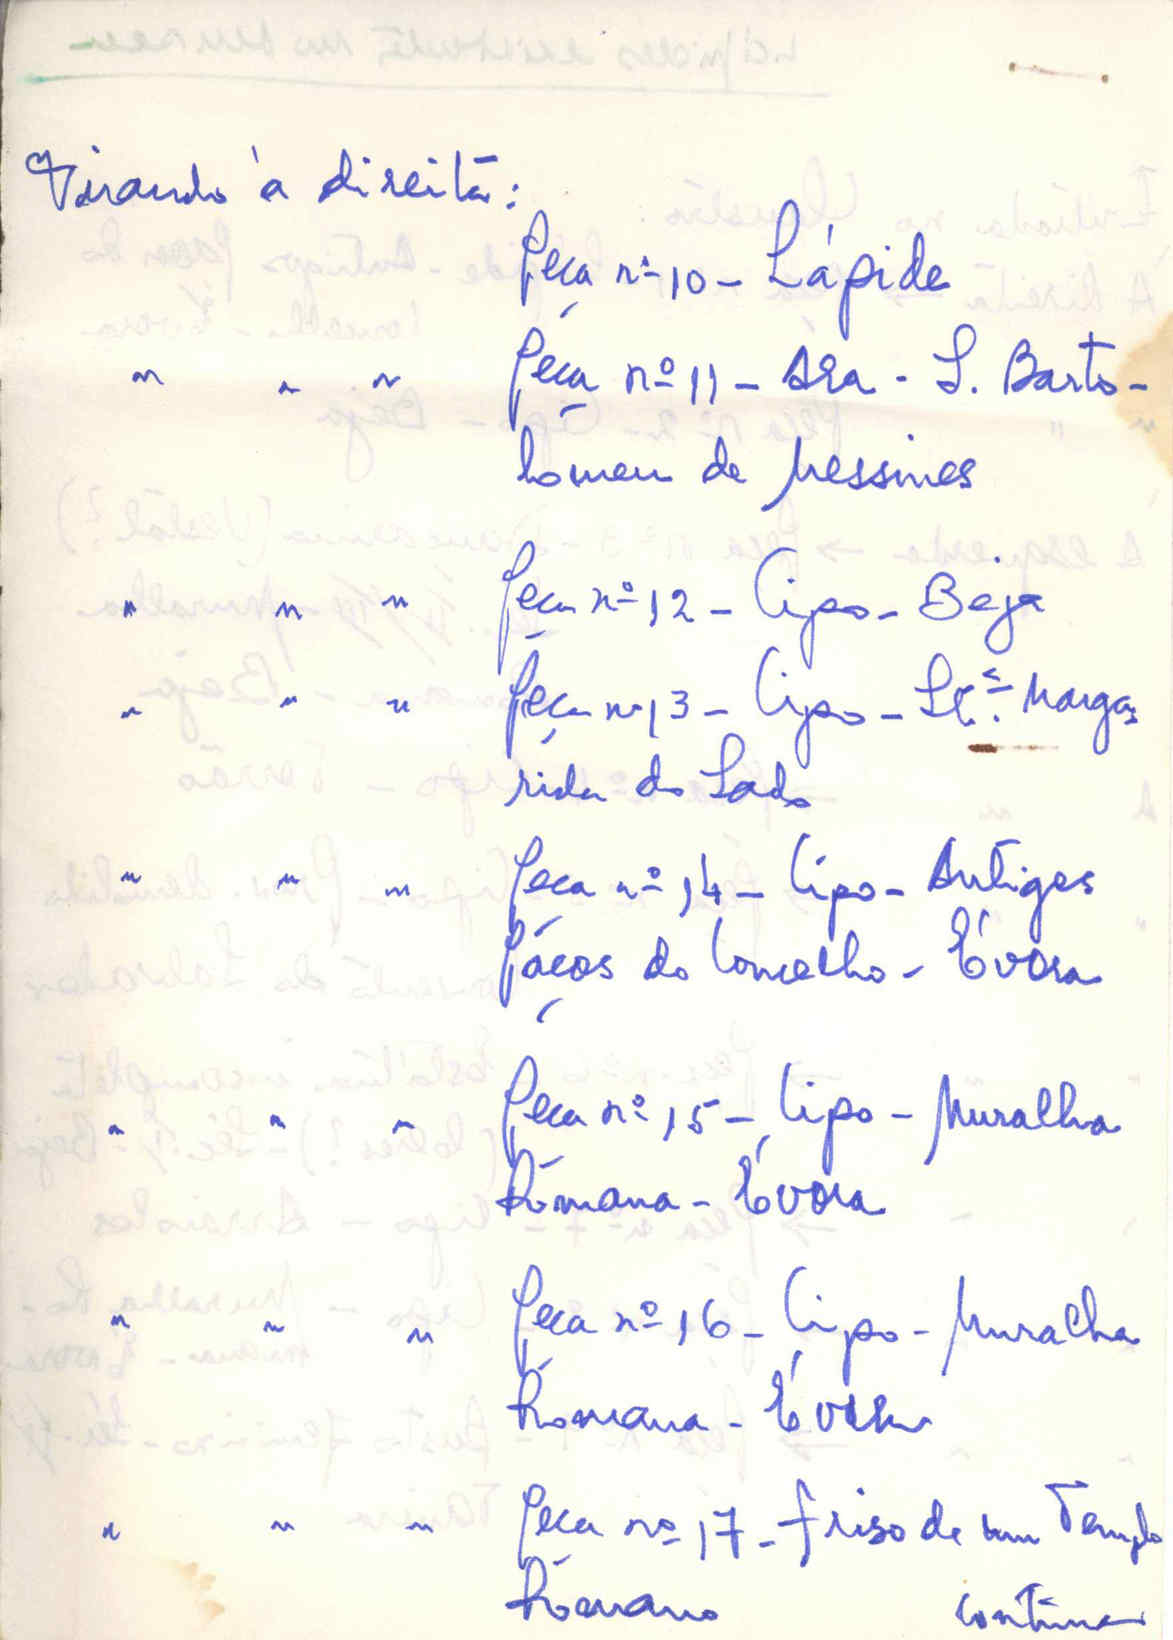 Virando à direita:
Peça nº 10 - Lápide
" " " Peça nº 11 - Ara - S. Barto-
lomeu de Messines
" " " Peça nº 12 - Cipo - Beja
" " " Peça nº 13 - Cipo - Stª. Marga
rida do Sado
" " " Peça nº 14 - Cipo - Antigos
Paços do Concelho - Évora
" " " Peça nº 15 - Cipo - Muralha
Romana - Évora
" " " Peça nº 16 - Cipo - Muralha
Romana - Évora
" " " Peça nº 17 - friso de um Templo
Romano continua